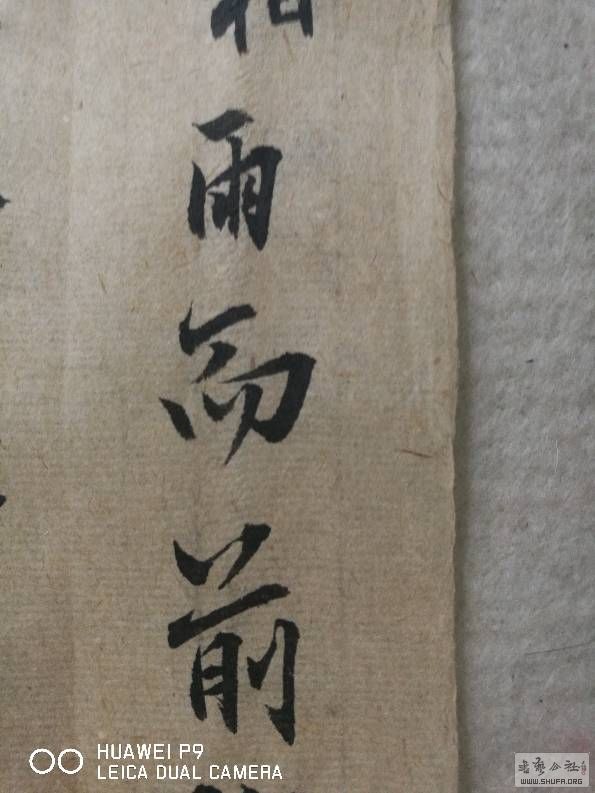 雨
而
前
HUAWEI P9
LEICA DUAL CAMERA
书艺公社
WWW.SHUFA.ORG